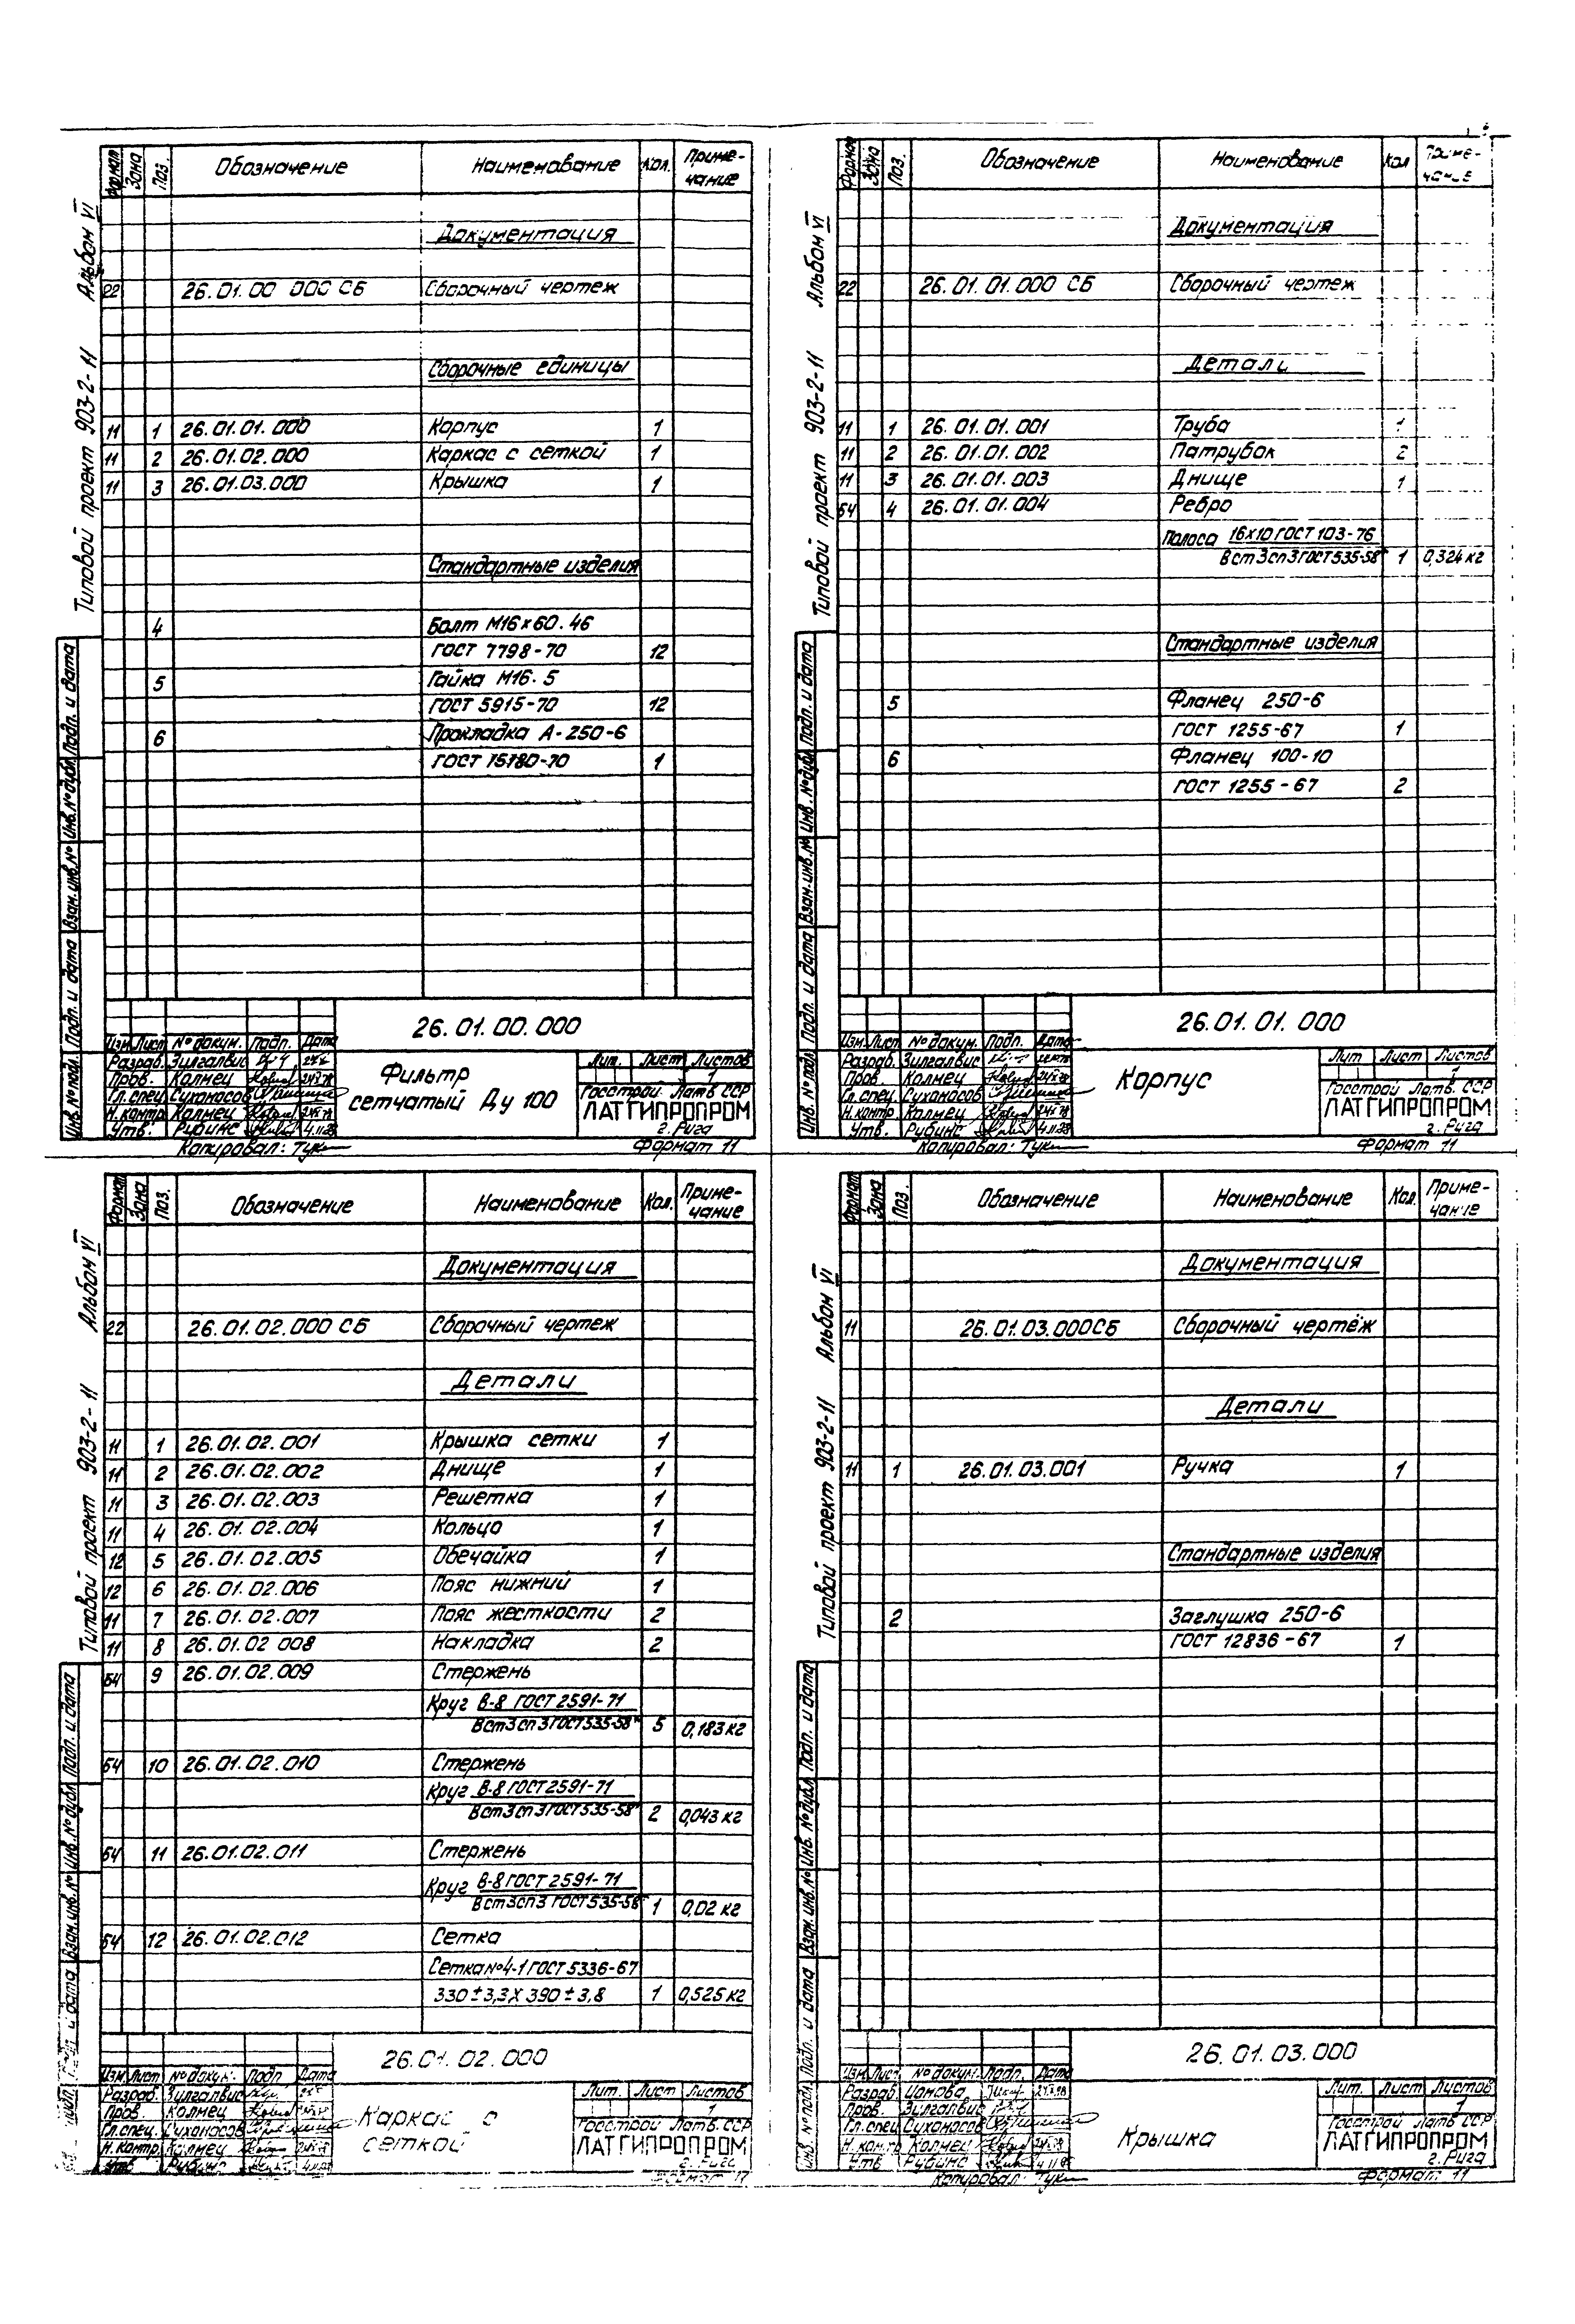 Типовой проект 903-2-11 Альбом VI
Формат Зона Поз. Обозначение Наименование Кол. Приме-чание
Документация
22 26.01.00 000 СБ Сборочный чертеж
Сборочные единицы
11 1 26.01.01.000 Корпус 1
11 2 26.01.02.000 Каркас с сеткой 1
11 3 26.01.03.000 Крышка 1
Стандартные изделия
4 Болт М16×60.46
ГОСТ 7798-70 12
5 Гайка М16.5
ГОСТ 5915-70 12
6 Прокладка А-250-6
ГОСТ 15180-70 1
Инв. № подл. Подп. и дата Взам. инв. № Инв. № дубл. Подп. и дата
26.01.00.000
Изм. Лист № докум. Подп. Дата
Разраб. Зилгалвис
Пров. Колмец
Гл. спец. Суханасов
Н. контр. Колмец
Утв. Рубинс
Фильтр
сетчатый Ду 100
Лит. Лист Листов
1
Госстрой Латв. ССР
ЛАТГИПРОПРОМ
г. Рига
Копировал: Формат 11
Типовой проект 903-2-11 Альбом VI
Формат Зона Поз. Обозначение Наименование Кол Приме-чание
Документация
22 26.01.01.000 СБ Сборочный чертеж
Детали
11 1 26.01.01.001 Труба 1
11 2 26.01.01.002 Патрубок 2
11 3 26.01.01.003 Днище 1
БЧ 4 26.01.01.004 Ребро
Полоса 16×10 ГОСТ 103-76
В ст 3 сп 3 ГОСТ 535-58* 1 0,324 кг
Стандартные изделия
5 Фланец 250-6
ГОСТ 1255-67 1
6 Фланец 100-10
ГОСТ 1255-67 2
Инв. № подл. Подп. и дата Взам. инв. № Инв. № дубл. Подп. и дата
26.01.01.000
Изм. Лист № докум. Подп. Дата
Разраб. Зилгалвис
Пров. Колмец
Гл. спец. Суханасов
Н. контр. Колмец
Утв. Рубинс
Корпус
Лит Лист Листов
1
Госстрой Латв. ССР
ЛАТГИПРОПРОМ
г. Рига
Копировал: Формат 11
Типовой проект 903-2-11 Альбом VI
Формат Зона Поз. Обозначение Наименование Кол. Приме-чание
Документация
22 26.01.02.000 СБ Сборочный чертеж
Детали
11 1 26.01.02.001 Крышка сетки 1
11 2 26.01.02.002 Днище 1
11 3 26.01.02.003 Решетка 1
11 4 26.01.02.004 Кольцо 1
12 5 26.01.02.005 Обечайка 1
12 6 26.01.02.006 Пояс нижний 1
11 7 26.01.02.007 Пояс жесткости 2
11 8 26.01.02 008 Накладка 2
БЧ 9 26.01.02.009 Стержень
Круг В-8 ГОСТ 2591-71
В ст 3 сп 3 ГОСТ 535-58* 5 0,183 кг
БЧ 10 26.01.02.010 Стержень
Круг В-8 ГОСТ 2591-71
В ст 3 сп 3 ГОСТ 535-58* 2 0,043 кг
БЧ 11 26.01.02.011 Стержень
Круг В-8 ГОСТ 2591-71
В ст 3 сп 3 ГОСТ 535-58* 1 0,02 кг
БЧ 12 26.01.02.012 Сетка
Сетка №4-1 ГОСТ 5336-67
330 ± 3,3 × 390 ± 3,8 1 0,525 кг
и дата Взам. инв. № Инв. № дубл. Подп. и дата
26.01.02.000
Изм. Лист № докум. Подп Дата
Разраб. Зилгалвис
Пров. Колмец
Гл. спец. Суханасов
Н. контр. Колмец
Утв Рубинс
Каркас с
сеткой
Лит. Лист Листов
1
Госстрой Латв. ССР
ЛАТГИПРОПРОМ
г. Рига
Типовой проект 903-2-11 Альбом VI
Формат Зона Поз. Обозначение Наименование Кол. Приме-чание
Документация
11 26.01.03.000СБ Сборочный чертёж
Детали
11 1 26.01.03.001 Ручка 1
Стандартные изделия
2 Заглушка 250-6
ГОСТ 12836-67 1
Инв. № подл. Подп. и дата Взам. инв. № Инв. № дубл. Подп. и дата
26.01.03.000
Изм. Лист № докум. Подп. Дата
Разраб. Ионова
Пров. Зилгалвис
Гл. спец. Суханасов
Н. контр Колмец
Утв Рубинс
Крышка
Лит. Лист Листов
1
Госстрой Латв. ССР
ЛАТГИПРОПРОМ
г. Рига
Копировал: Формат 11